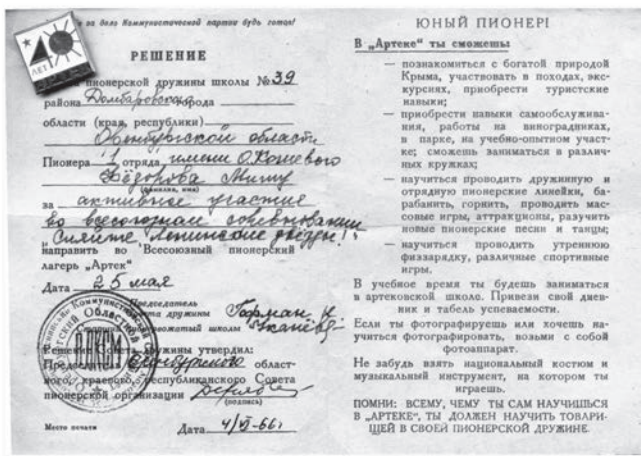 за дело Коммунистической партии будь готов!
40
ЛЕТ
РЕШЕНИЕ
пионерской дружины школы № 39
района Домбаровского города
области (края, республики)
Оренбургской области
Пионера 1 отряда имени О.Кошевого
Фёдорова Мишу
(фамилия, имя)
за активное участие
во всесоюзном соревновании
„Сияйте, Ленинские звёзды!"
направить во Всесоюзный пионерский
лагерь „Артек"
Дата 25 мая
Председатель
Совета дружины Горман
Старший пионервожатый школы
Решение Совета дружины утвердил:
Председатель Оренбургского област-
ного, краевого, республиканского Совета
пионерской организации
(подпись)
Место печати Дата 4/VI-66г
ВЛКСМ
ЮНЫЙ ПИОНЕР!
В „Артеке" ты сможешь:
— познакомиться с богатой природой
Крыма, участвовать в походах, экс-
курсиях, приобрести туристские
навыки;
— приобрести навыки самообслужива-
ния, работы на виноградниках,
в парке, на учебно-опытном участ-
ке; сможешь заниматься в различ-
ных кружках;
— научиться проводить дружинную и
отрядную пионерские линейки, ба-
рабанить, горнить, проводить мас-
совые игры, аттракционы, разучить
новые пионерские песни и танцы;
— научиться проводить утреннюю
физзарядку, различные спортивные
игры.
В учебное время ты будешь заниматься
в артековской школе. Привези свой днев-
ник и табель успеваемости.
Если ты фотографируешь или хочешь на-
учиться фотографировать, возьми с собой
фотоаппарат.
Не забудь взять национальный костюм и
музыкальный инструмент, на котором ты
играешь.
ПОМНИ: ВСЕМУ, ЧЕМУ ТЫ САМ НАУЧИШЬСЯ
В „АРТЕКЕ", ТЫ ДОЛЖЕН НАУЧИТЬ ТОВАРИ-
ЩЕЙ В СВОЕЙ ПИОНЕРСКОЙ ДРУЖИНЕ.